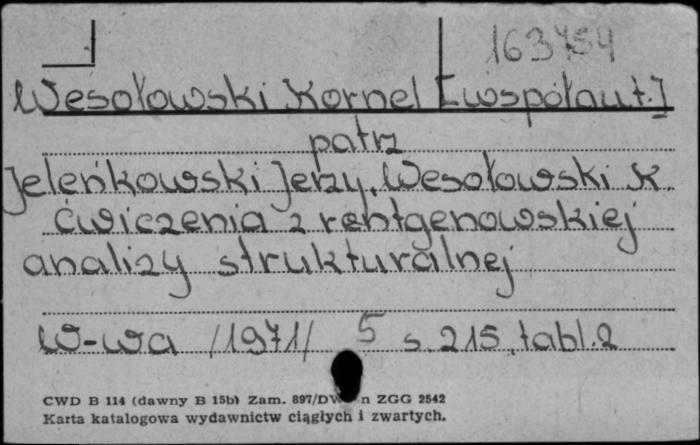 163454
Wesołowski Kornel [współaut.]
patrz
Jeleńkowski Jerzy, Wesołowski K.
Ćwiczenia z rentgenowskiej
analizy strukturalnej
W-wa /1971/ 5 s. 215, tabl. 2
CWD B 114 (dawny B 15b) Zam. 897/DW n ZGG 2542
Karta katalogowa wydawnictw ciągłych i zwartych.